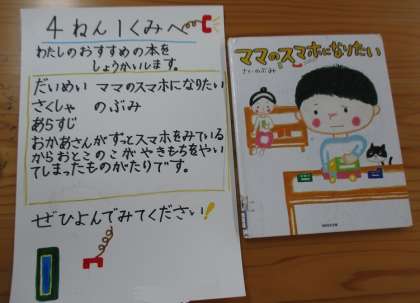 4ねん1くみへ
わたしのおすすめの本を
しょうかいします。
だいめい ママのスマホになりたい
さくしゃ のぶみ
あらすじ
おかあさんがずっとスマホをみている
からおとこのこがやきもちをやい
てしまったものがたりです。
ぜひよんでみてください!
ママのスマホになりたい
さく・のぶみ